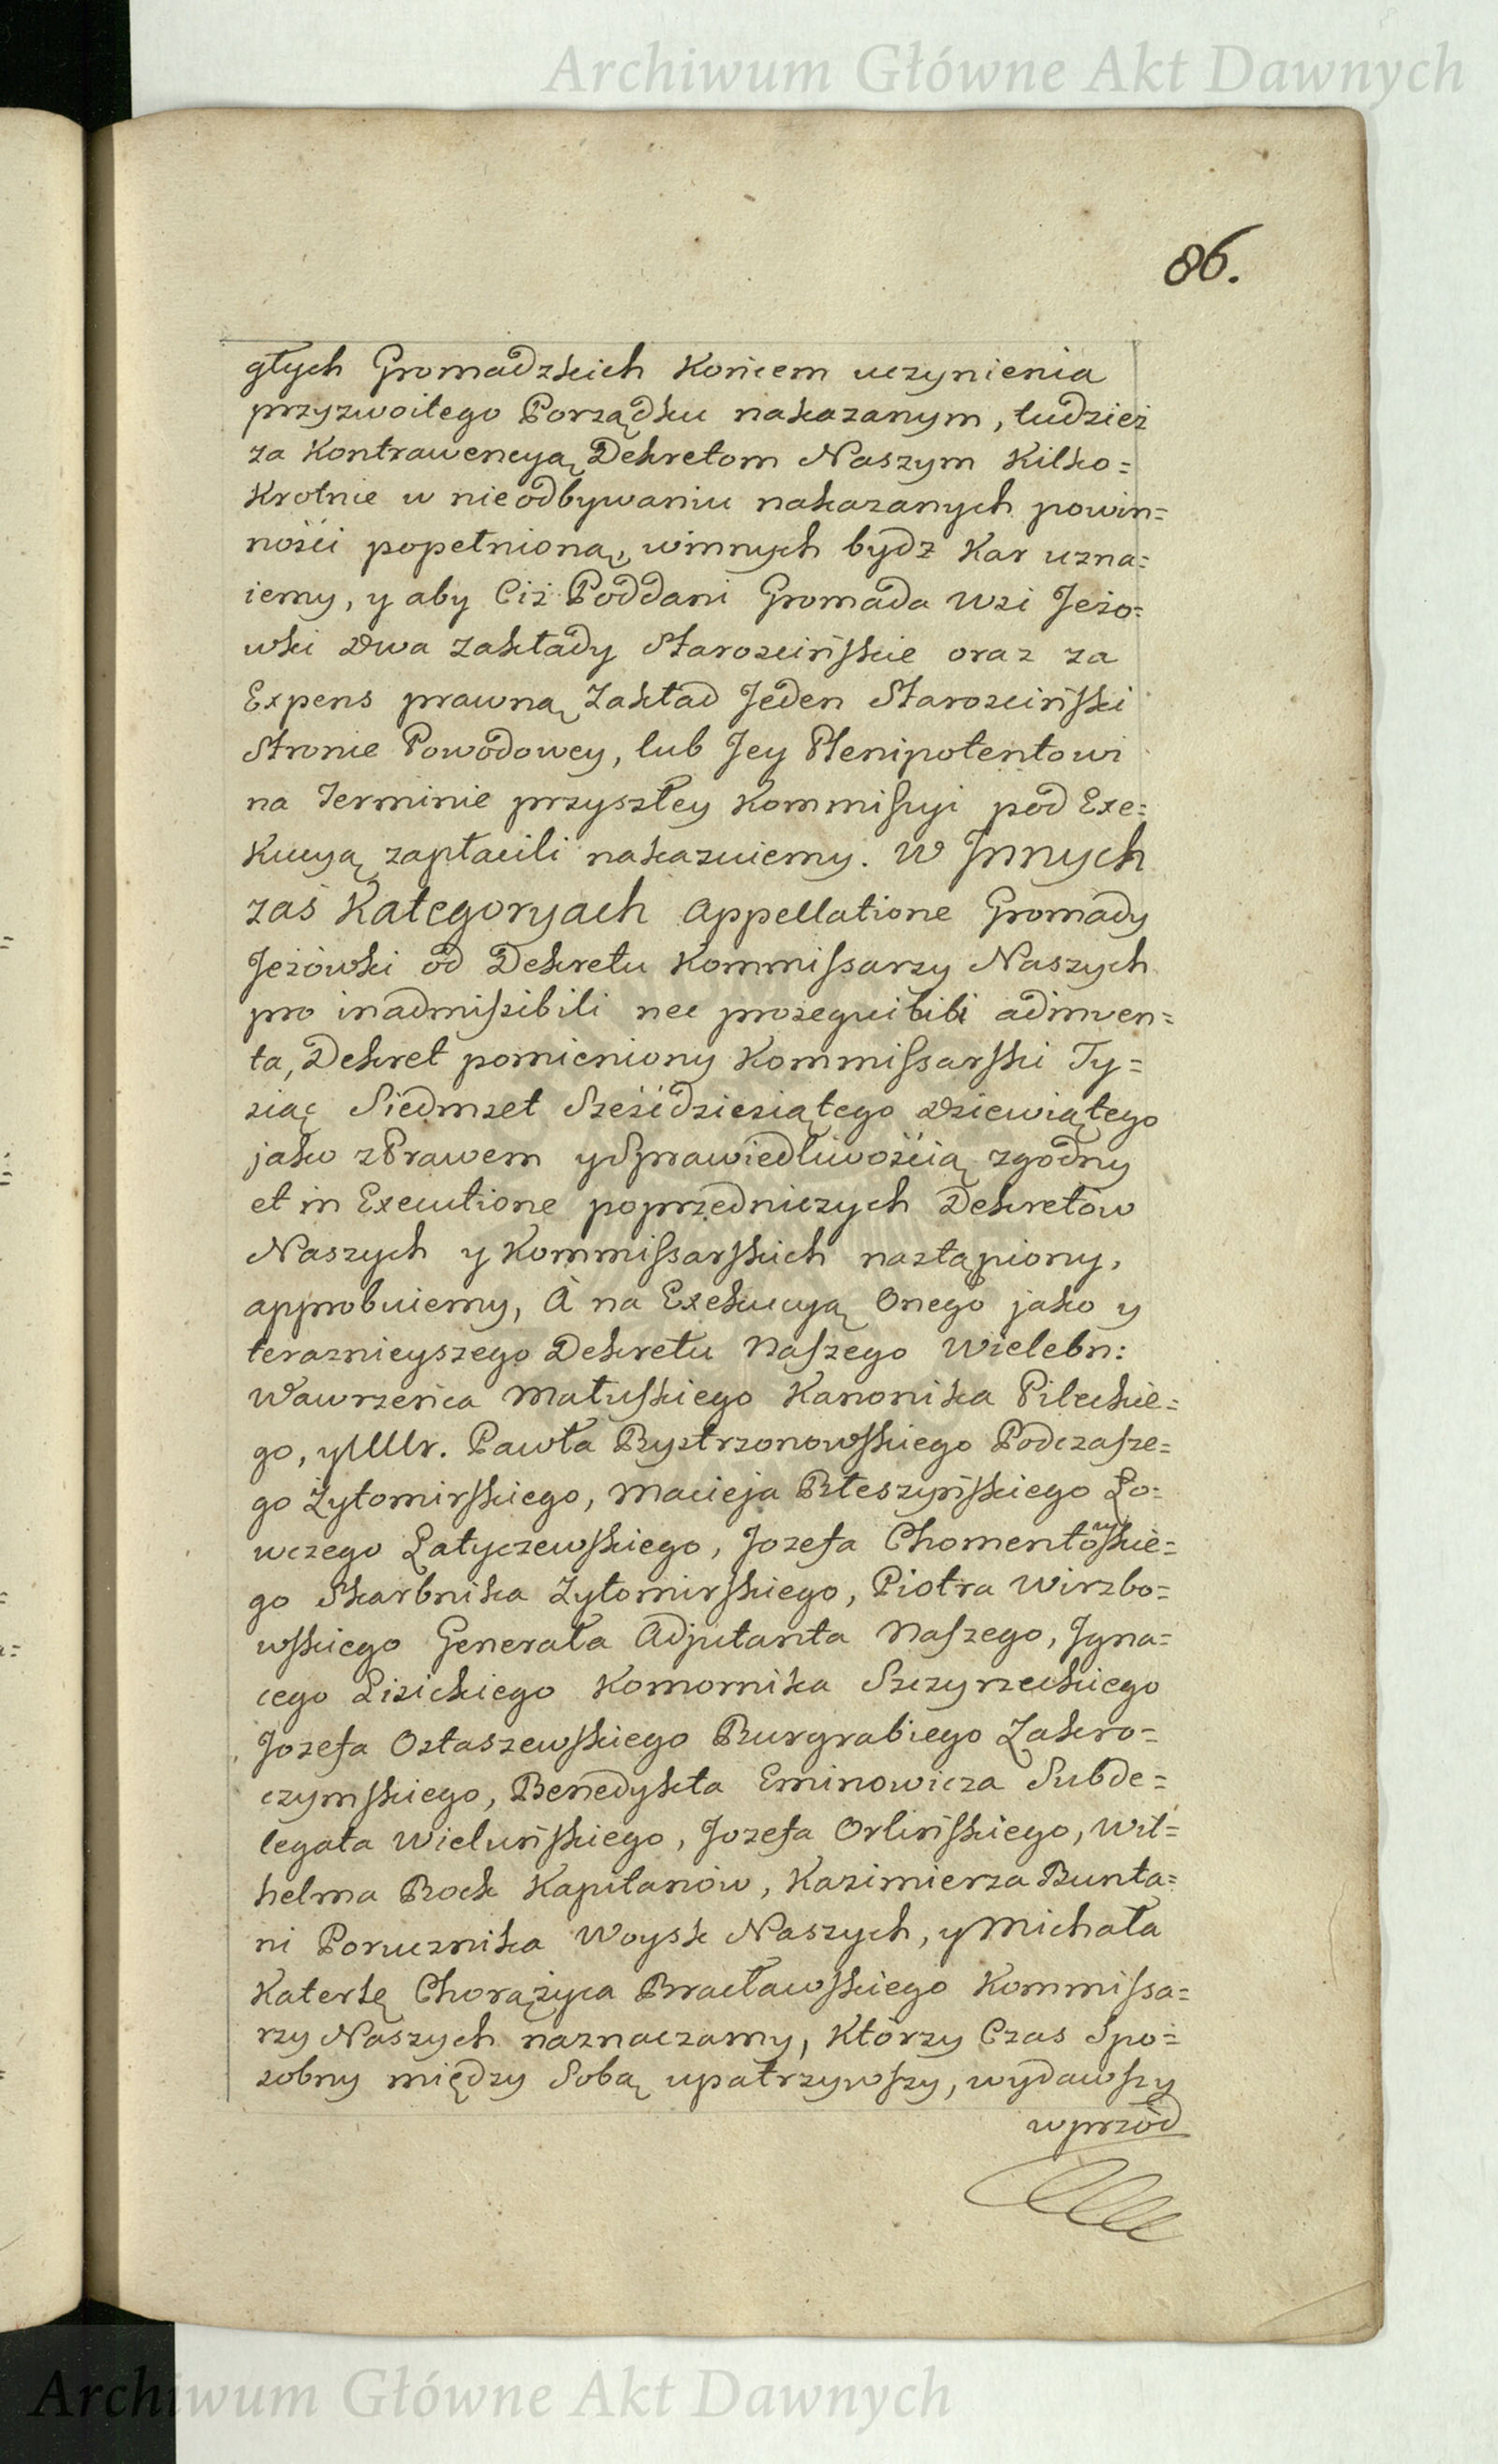 Archiwum Główne Akt Dawnych
86.
głych Gromadzkich Końcem uczynienia
przyzwoitego Porządku nakazanym, tudzież
za Kontrawencyą Dekretom Naszym Kilko=
Krotnie w nieodbywaniu nakazanych powin=
nośći popełnioną, winnych bydz Kar uzna=
iemy, y aby Ciż Poddani Gromada Wsi Jeżo=
wki dwa Zakłady Starościńskie oraz za
Expens prawną Zakład Jeden Starościński
Stronie Powodowey, lub Jey Plenipotentowi
na Terminie przyszłey Kommissyi pod Exe=
Kucyą zapłacili nakazuiemy. W Jnnych
zaś Kategoryach Appellatione Gromady
Jeżowki od Dekretu Kommissarzy Naszych
pro inadmissibili nec prosequibili adinven=
ta, Dekret pomieniony Kommissarski Ty=
siąc Siedmset Sześćdziesiątego dziewiątego
jako z Prawem y Sprawiedliwośćią zgodny
et in Executione poprzedniczych Dekretow
Naszych y Kommissarskich nastąpiony,
approbuiemy, A na Exekucyą Onego jako y
teraznieyszego Dekretu Naszego Wielebn:
Wawrzeńca Matuskiego Kanonika Pileckie=
go, y UUr. Pawła Bystrzonowskiego Podczasze=
go Żytomirskiego, Macieja Błeszyńskiego Ło=
wczego Łatyczewskiego, Jozefa Chomentowskie=
go Skarbnika Żytomirskiego, Piotra Wirzbo=
wskiego Generała Adjutanta Naszego, Jgna=
cego Lisickiego Komornika Szczyrzeckiego
Jozefa Ostaszewskiego Burgrabiego Zakro=
czymskiego, Benedykta Eminowicza Subde=
legata Wieluńskiego, Jozefa Orlińskiego, Wil=
helma Bock Kapitanow, Kazimierza Bunta=
ni Porucznika Woysk Naszych, y Michała
Katerlę Chorążyca Bracławskiego Kommissa=
rzy Naszych naznaczamy, Którzy Czas Spo=
sobny między Sobą upatrzywszy, wydawszy
wprzód
Archiwum Główne Akt Dawnych